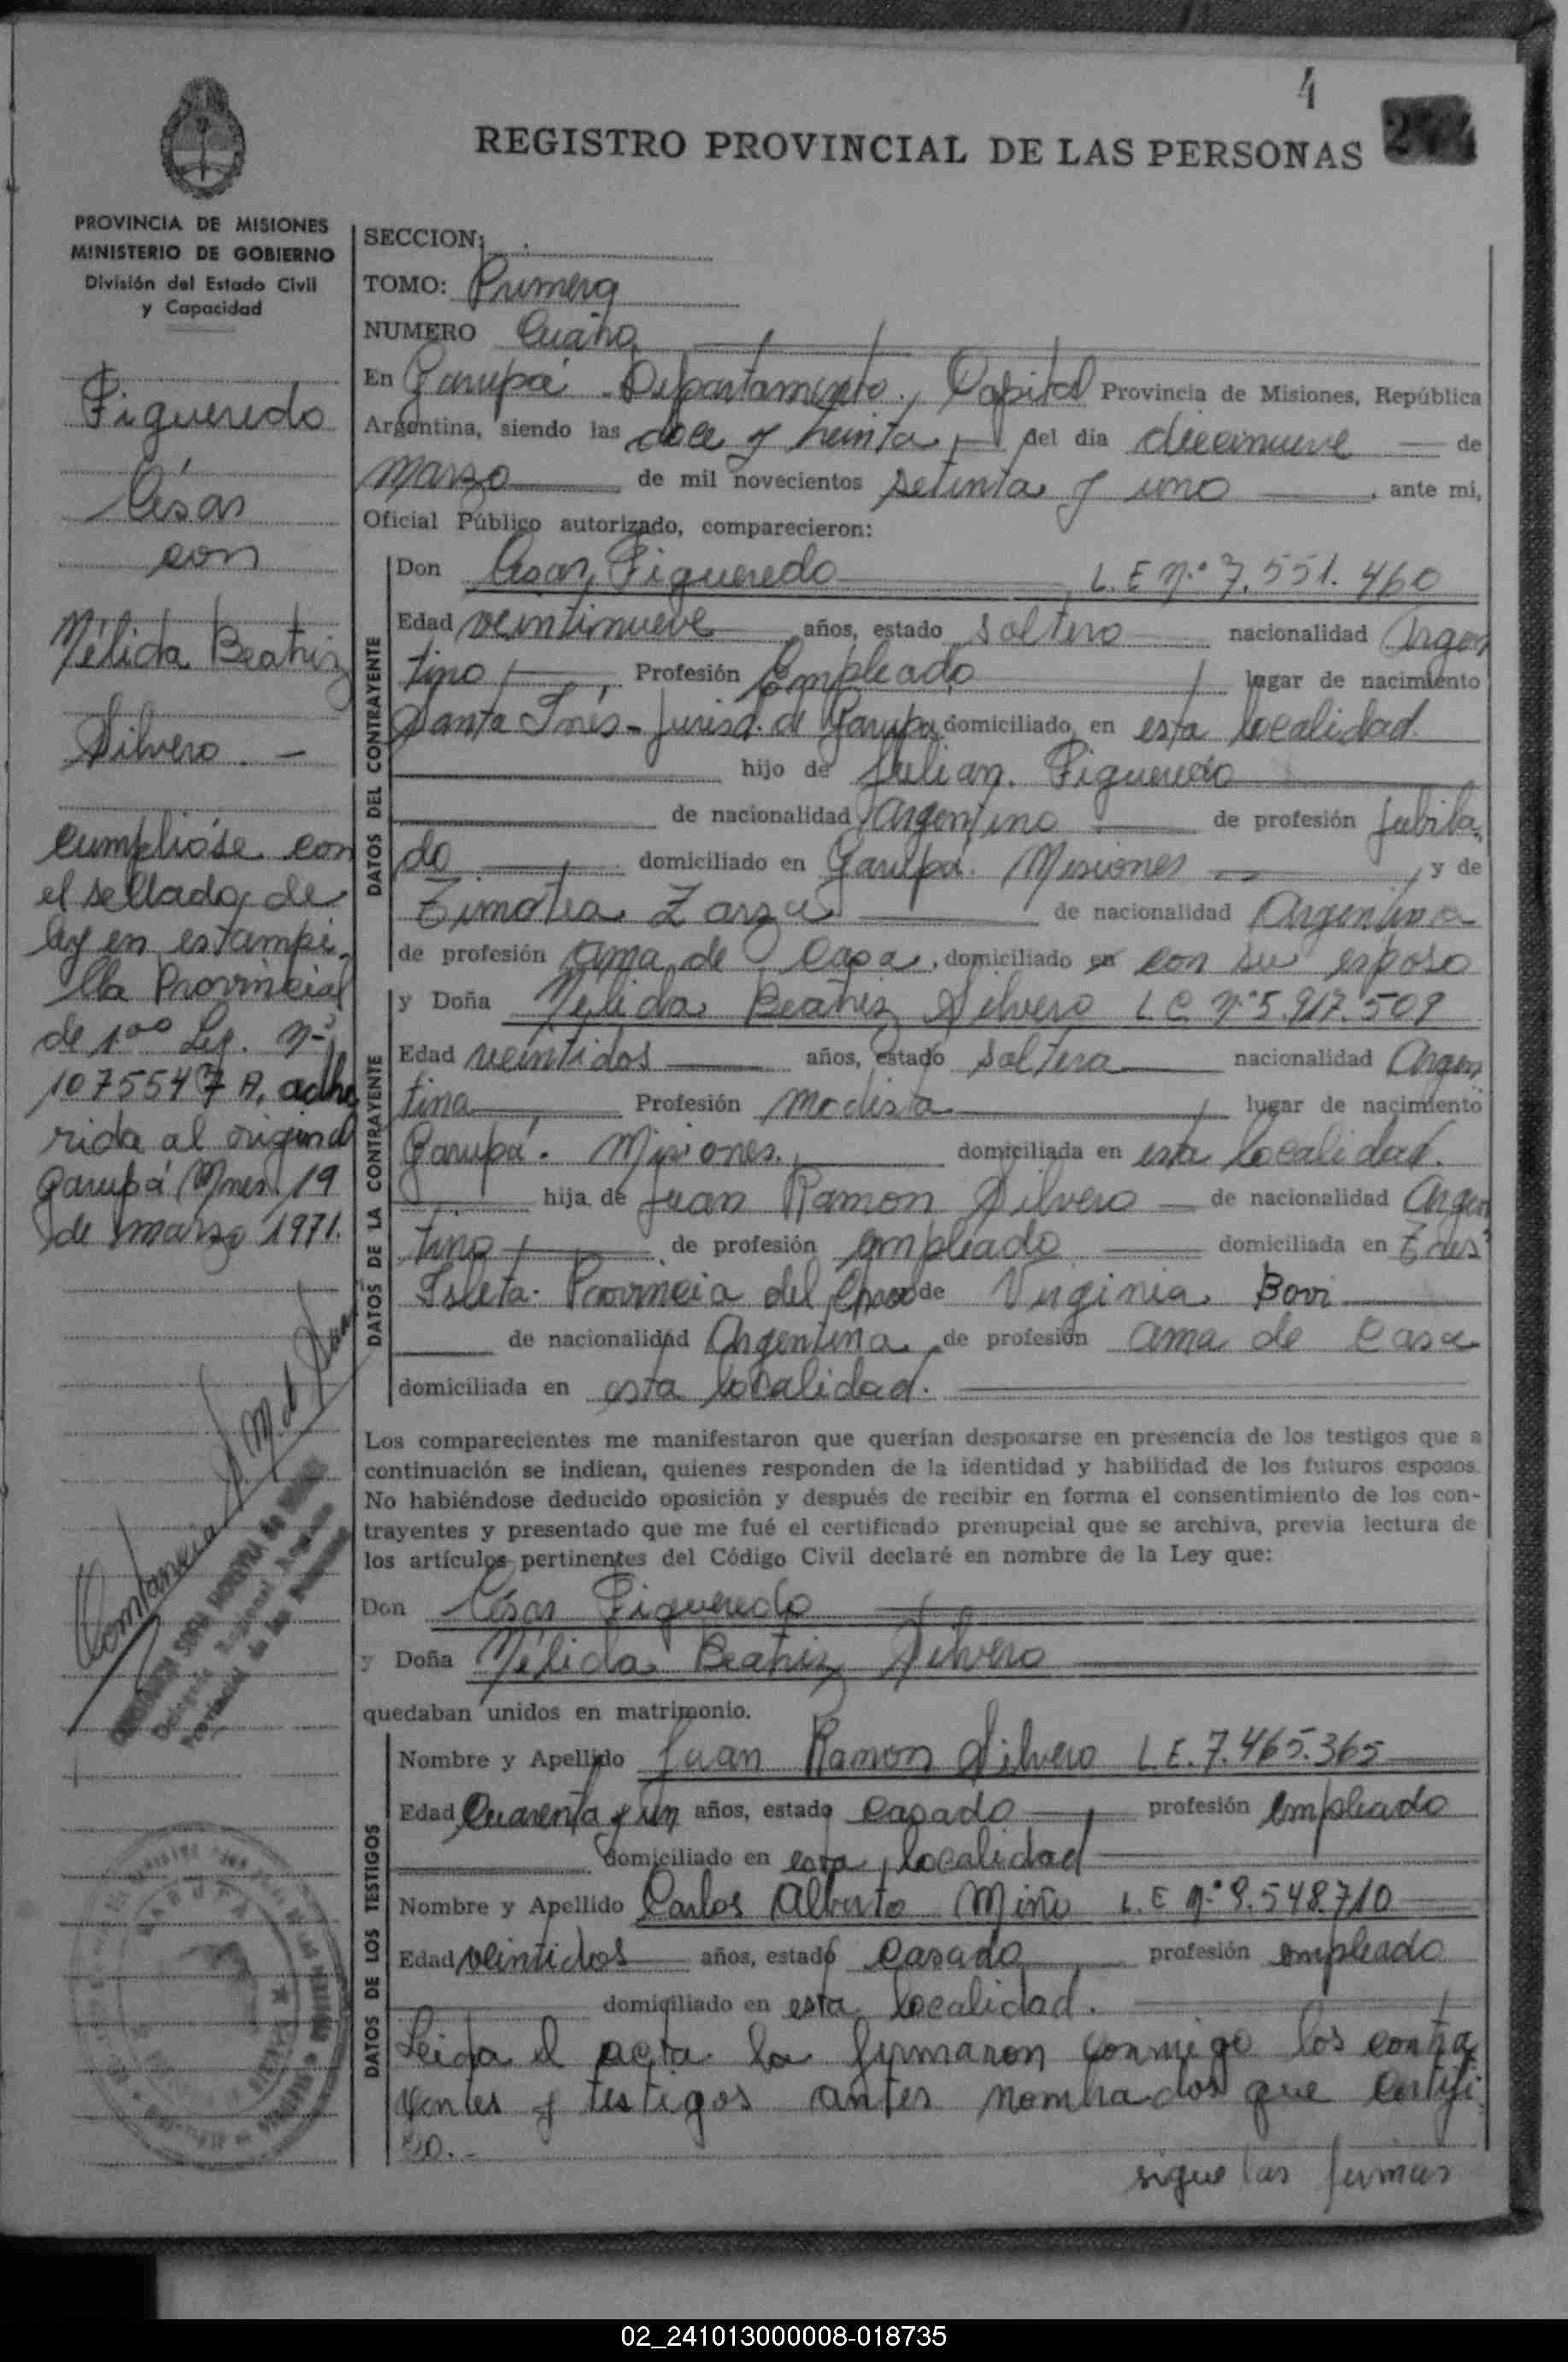 4
REGISTRO PROVINCIAL DE LAS PERSONAS
PROVINCIA DE MISIONES
MINISTERIO DE GOBIERNO
División del Estado Civil
y Capacidad
Figueredo
César
con
Nélida Beatriz
Silvero . —
Cumplióse con
el sellado de
ley en estampi
lla Provincial
de 1oo Ley. Nº
1075547 A. adhe
rida al original
Garupá Mnes. 19
de marzo 1971.
SECCION:
TOMO: Primera
NUMERO Cuatro
En Garupá Departamento, Capital Provincia de Misiones, República
Argentina, siendo las doce y treinta, del día diecinueve — de
marzo de mil novecientos setenta y uno , ante mi,
Oficial Público autorizado, comparecieron:
DATOS DEL CONTRAYENTE
Don César Figueredo L. E Nº 7.551.460
Edad veintinueve años, estado soltero nacionalidad Argen
tino, Profesión Empleado lugar de nacimiento
Santa Inés - Jurisd. de Garupá domiciliado en esta localidad.
hijo de Julian. Figueredo
de nacionalidad Argentino de profesión Jubila
do domiciliado en Garupá. Misiones , y de
Timotea Zarza de nacionalidad Argentina
de profesión ama de casa, domiciliado en con su esposo
DATOS DE LA CONTRAYENTE
y Doña Nélida Beatriz Silvero L C Nº 5.917.509
Edad veintidos años, estado soltera nacionalidad Argen
tina, Profesión modista lugar de nacimiento
Garupá. Misiones. domiciliada en esta localidad.
hija de Juan Ramon Silvero — de nacionalidad Argen
tino de profesión empleado domiciliada en Tres
Isleta. Provincia del Chaco de Virginia Bovi
de nacionalidad Argentina, de profesión ama de casa
domiciliada en esta localidad.
Los comparecientes me manifestaron que querían desposarse en presencia de los testigos que a
continuación se indican, quienes responden de la identidad y habilidad de los futuros esposos.
No habiéndose deducido oposición y después de recibir en forma el consentimiento de los con-
trayentes y presentado que me fué el certificado prenupcial que se archiva, previa lectura de
los artículos pertinentes del Código Civil declaré en nombre de la Ley que:
Don César Figueredo
y Doña Nélida Beatriz Silvero
quedaban unidos en matrimonio.
DATOS DE LOS TESTIGOS
Nombre y Apellido Juan Ramon Silvero L E. 7.465.365
Edad Cuarenta y un años, estado casado profesión empleado
domiciliado en esta localidad
Nombre y Apellido Carlos Alberto Miño L. E Nº 8.548710
Edad veintidos años, estado casado profesión empleado
domiciliado en esta localidad.
Leida el acta la firmaron conmigo los contra
yentes y testigos antes nombrados que certifi
co.-
sigue las firmas
02_241013000008-018735